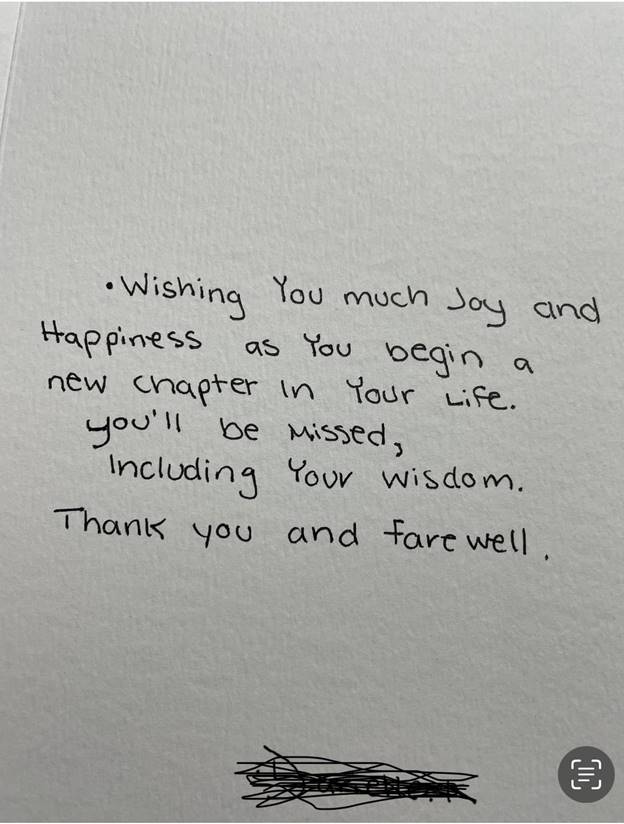 •Wishing You much Joy and
Happiness as You begin a
new chapter In Your Life.
you'll be Missed,
Including Your wisdom.
Thank you and farewell.